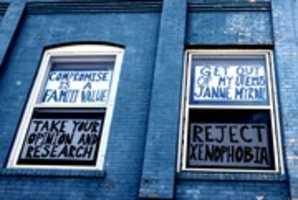 COMPROMISE
IS A
FAMILY VALUE!
TAKE YOUR
OPINION AND
RESEARCH
GET OUT
OF MY UTERUS
REJECT
XENOPHOBIA